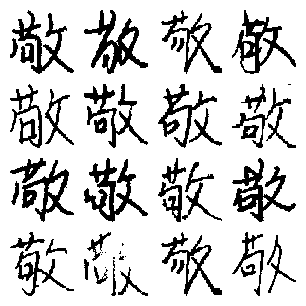 敬敬敬敬
敬敬敬敬
敬敬敬敬
敬敬敬敬